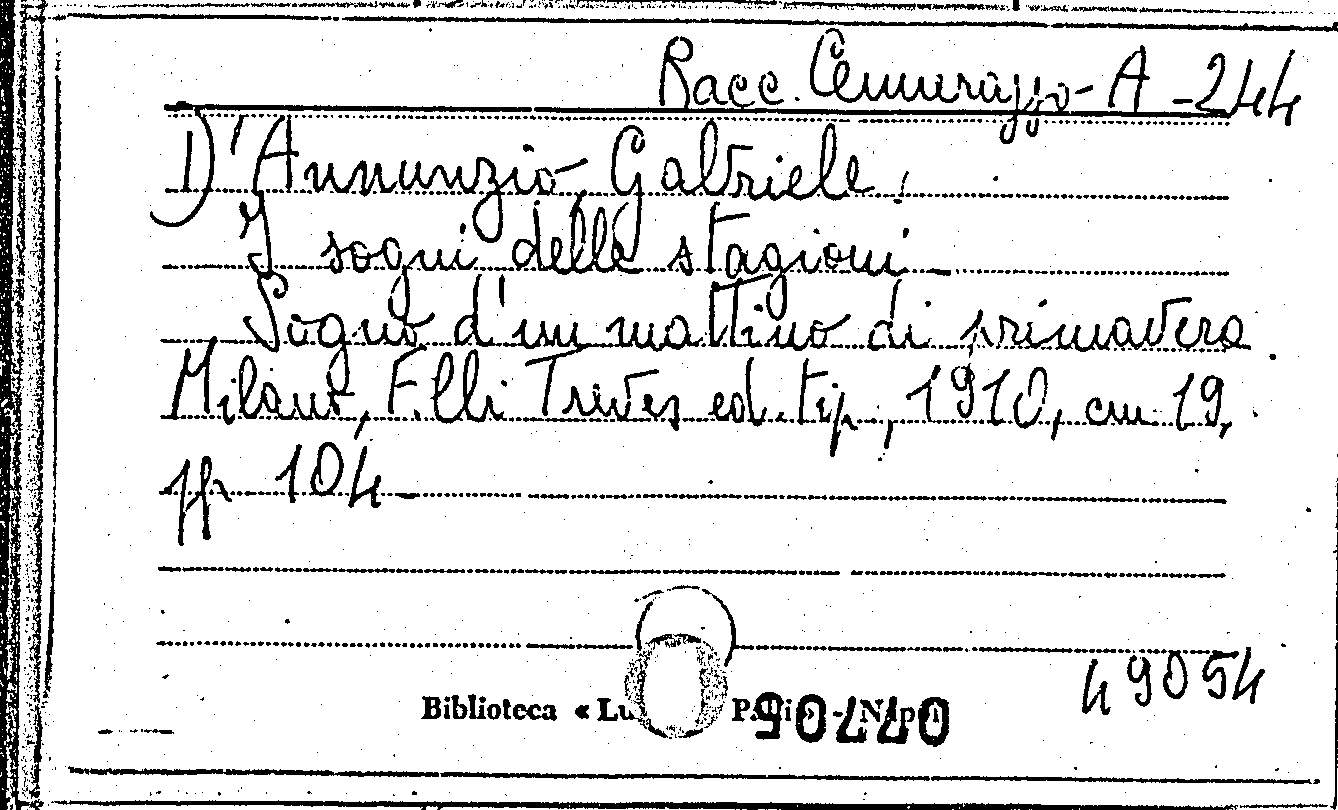 Racc. Cemmerazzo - A - 244
D'Annunzio, Gabriele.
I sogni delle stagioni -
Sogno d'un mattino di primavera
Milano, F.lli Treves ed. tip., 1910, cm. 19,
pp. 104 -
49054
Biblioteca « Lu